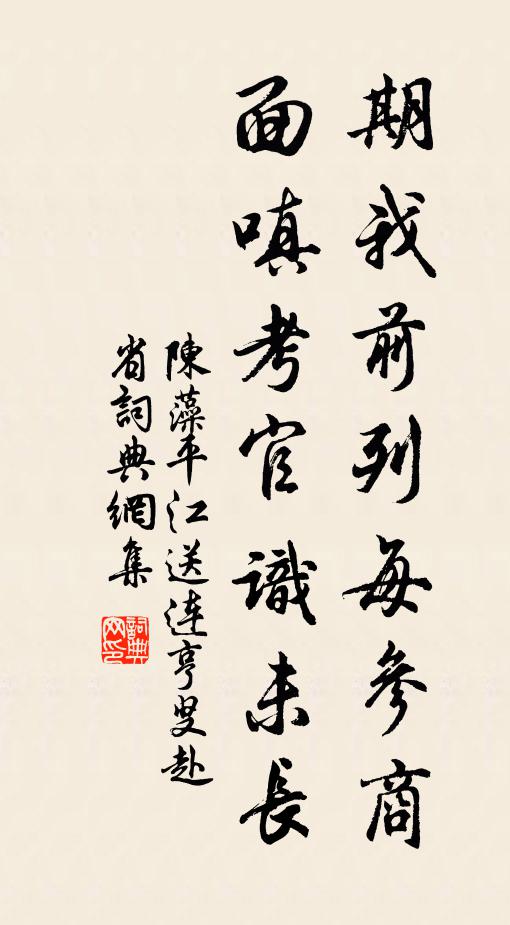 期我前列每參商
面嗔考官識未長
陳藻平江送連亨叟赴
省詞典網集
詞典
网印